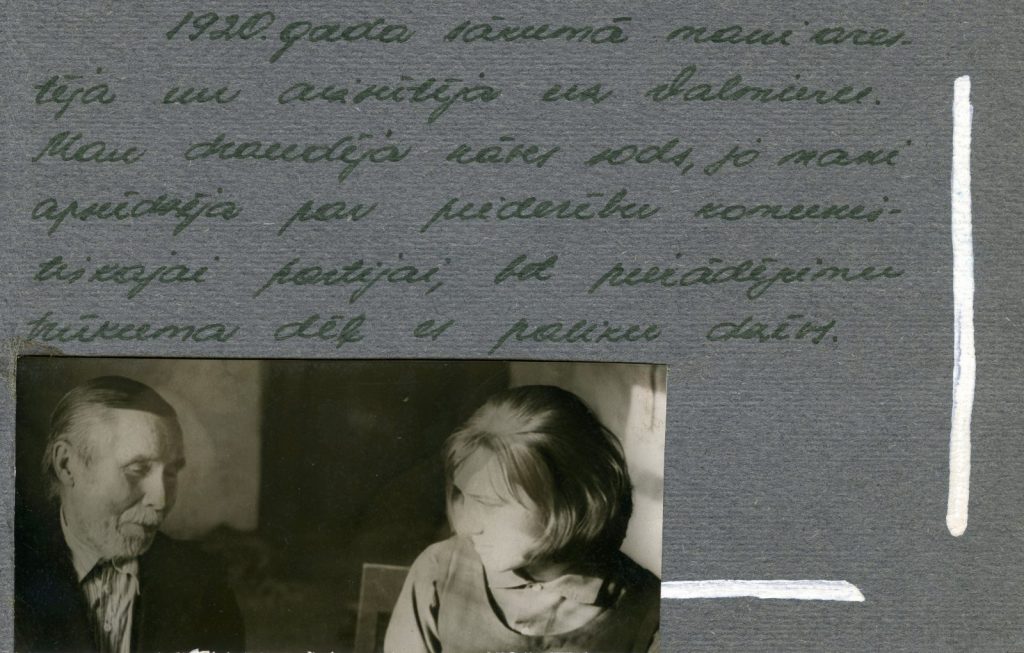 1920. gada sākumā mani ares-
tēja un aizsūtīja uz Valmieru.
Man draudēja nāves sods, jo mani
apsūdzēja par piederību komunis-
tiskajai partijai, bet pierādījumu
trūkuma dēļ es paliku dzīvs.